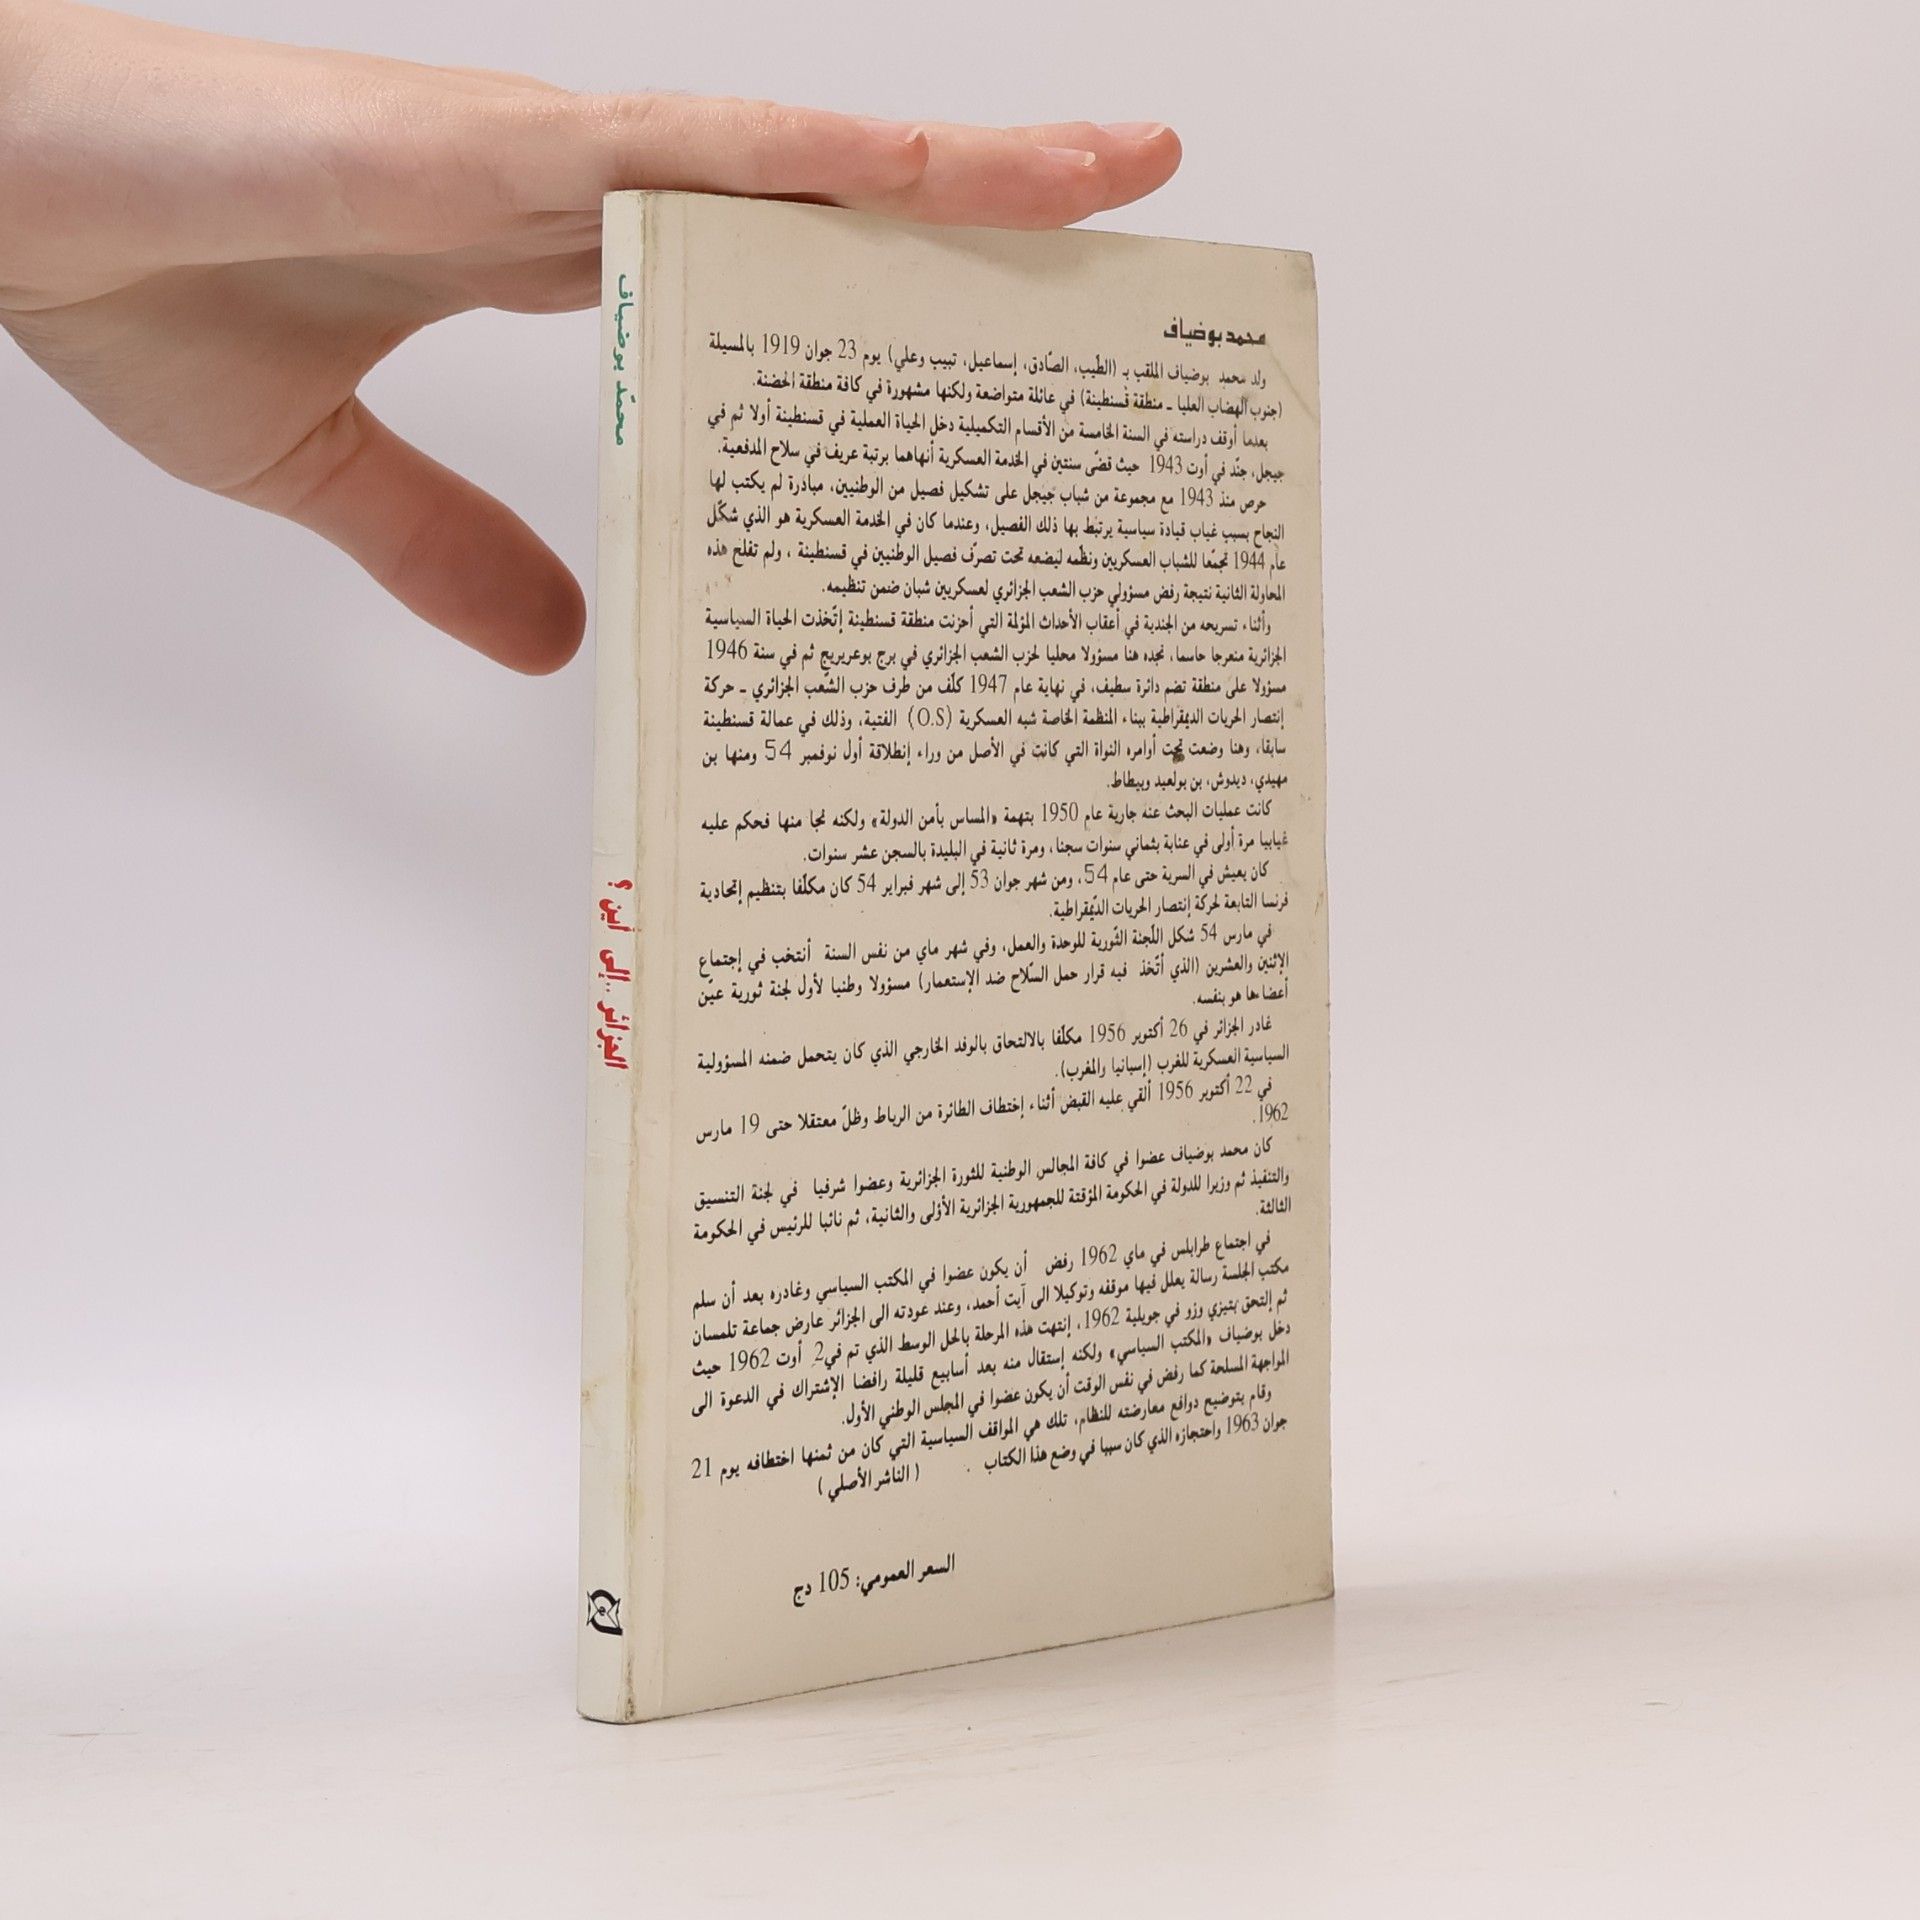 محمد بوضياف
الجزائر ..إلى أين ؟
محمد بوضياف
ولد محمد بوضياف الملقب بـ (الطّيب، الصّادق، إسماعيل، تبيب وعلي) يوم 23 جوان 1919 بالمسيلة
(جنوب الهضاب العليا ـ منطقة قسنطينة) في عائلة متواضعة ولكنها مشهورة في كافة منطقة الحضنة.
بعدما أوقف دراسته في السنة الخامسة من الأقسام التكميلية دخل الحياة العملية في قسنطينة أولا ثم في
جيجل، جنّد في أوت 1943 حيث قضّى سنتين في الخدمة العسكرية أنهاهما برتبة عريف في سلاح المدفعية.
حرص منذ 1943 مع مجموعة من شباب جيجل على تشكيل فصيل من الوطنيين، مباذرة لم يكتب لها
النجاح بسبب غياب قيادة سياسية يرتبط بها ذلك الفصيل، وعندما كان في الخدمة العسكرية هو الذي شكّل
عام 1944 تجمّعا للشباب العسكريين ونظّمه ليضعه تحت تصرّف فصيل الوطنيين في قسنطينة ، ولم تفلح هذه
المحاولة الثانية نتيجة رفض مسؤولي حزب الشعب الجزائري لعسكريين شبان ضمن تنظيمه.
وأثناء تسريحه من الجندية في أعقاب الأحداث المؤلمة التي أحزنت منطقة قسنطينة إتّخذت الحياة السياسية
الجزائرية منعرجا حاسما، نجده هنا مسؤولا محليا لحزب الشعب الجزائري في برج بوعريريج ثم في سنة 1946
مسؤولا على منطقة تضم دائرة سطيف، في نهاية عام 1947 كلّف من طرف حزب الشّعب الجزائري ـ حركة
إنتصار الحريات الديمقراطية ببناء المنظمة الخاصة شبه العسكرية (O.S) الفتية، وذلك في عمالة قسنطينة
سابقا، وهنا وضعت تحت أوامره النواة التي كانت في الأصل من وراء إنطلاقة أول نوفمبر 54 ومنها بن
مهيدي، ديدوش، بن بولعيد وبيطاط.
كانت عمليات البحث عنه جارية عام 1950 بتهمة «المساس بأمن الدولة» ولكنه نجا منها فحكم عليه
غيابيا مرة أولى في عنابة بثماني سنوات سجنا، ومرة ثانية في البليدة بالسجن عشر سنوات.
كان يعيش في السرية حتى عام 54، ومن شهر جوان 53 إلى شهر فبراير 54 كان مكلّفا بتنظيم إتحادية
فرنسا التابعة لحركة إنتصار الحريات الدّيمقراطية.
في مارس 54 شكل اللّجنة الثّورية للوحدة والعمل، وفي شهر ماي من نفس السنة أنتخب في إجتماع
الإثنين والعشرين (الذي أتّخذ فيه قرار حمل السّلاح ضد الإستعمار) مسؤولا وطنيا لأول لجنة ثورية عيّن
أعضاءها هو بنفسه.
غادر الجزائر في 26 أكتوبر 1956 مكلّفا بالالتحاق بالوفد الخارجي الذي كان يتحمل ضمنه المسؤولية
السياسية العسكرية للغرب (إسبانيا والمغرب).
في 22 أكتوبر 1956 ألقي عليه القبض أثناء إختطاف الطائرة من الرباط وظلّ معتقلا حتى 19 مارس
1962.
كان محمد بوضياف عضوا في كافة المجالس الوطنية للثورة الجزائرية وعضوا شرفيا في لجنة التنسيق
والتنفيذ ثم وزيرا للدولة في الحكومة المؤقتة للجمهورية الجزائرية الأولى والثانية، ثم نائبا للرئيس في الحكومة
الثالثة.
في اجتماع طرابلس في ماي 1962 رفض أن يكون عضوا في المكتب السياسي وغادره بعد أن سلم
مكتب الجلسة رسالة يعلل فيها موقفه وتوكيلا الى آيت أحمد، وعند عودته الى الجزائر عارض جماعة تلمسان
ثم إلتحق بتيزي وزو في جويلية 1962، إنتهت هذه المرحلة بالحل الوسط الذي تم في 2 أوت 1962 حيث
دخل بوضياف «المكتب السياسي» ولكنه إستقال منه بعد أسابيع قليلة رافضا الإشتراك في الدعوة الى
المواجهة المسلحة كما رفض في نفس الوقت أن يكون عضوا في المجلس الوطني الأول.
وقام بتوضيح دوافع معارضته للنظام، تلك هي المواقف السياسية التي كان من ثمنها اختطافه يوم 21
جوان 1963 واحتجازه الذي كان سببا في وضع هذا الكتاب .
( الناشر الأصلي )
السعر العمومي: 105 دج